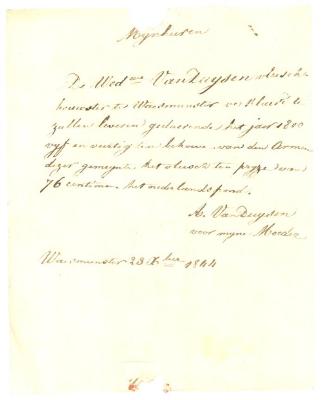 Mynheeren
De Wed.we Van Duysen vleesch
houwster te Waesmunster verklaert te
zullen leveren geduerende het jaer 1800
vyf en veertig ten behoeve van den Armen
dezer gemeynte het vleesch ten pryze van
76 centimen het nederlands pond.
A. Van Duysen
voor myne Moeder
Waesmunster 28 Xber 1844